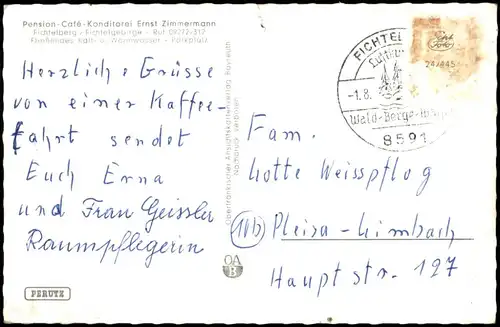 Pension-Café-Konditorei Ernst Zimmermann
Fichtelberg / Fichtelgebirge - Ruf 09272/317
Fließendes Kalt- u. Warmwasser - Parkplatz
Herzliche Grüsse
von einer Kaffee-
fahrt sendet
Euch Erna
und Frau Geissler
Raumpflegerin
PERUTZ
Oberfränkischer Ansichtskartenverlag Bayreuth
Nachdruck verboten
OA
B
FICHTEL
Luftkur
-1.8.
Wald-Berge-
8591
24/445
Fam.
Lotte Weisspflog
(10b) Pleisa-Limbach
Hauptstr. 127